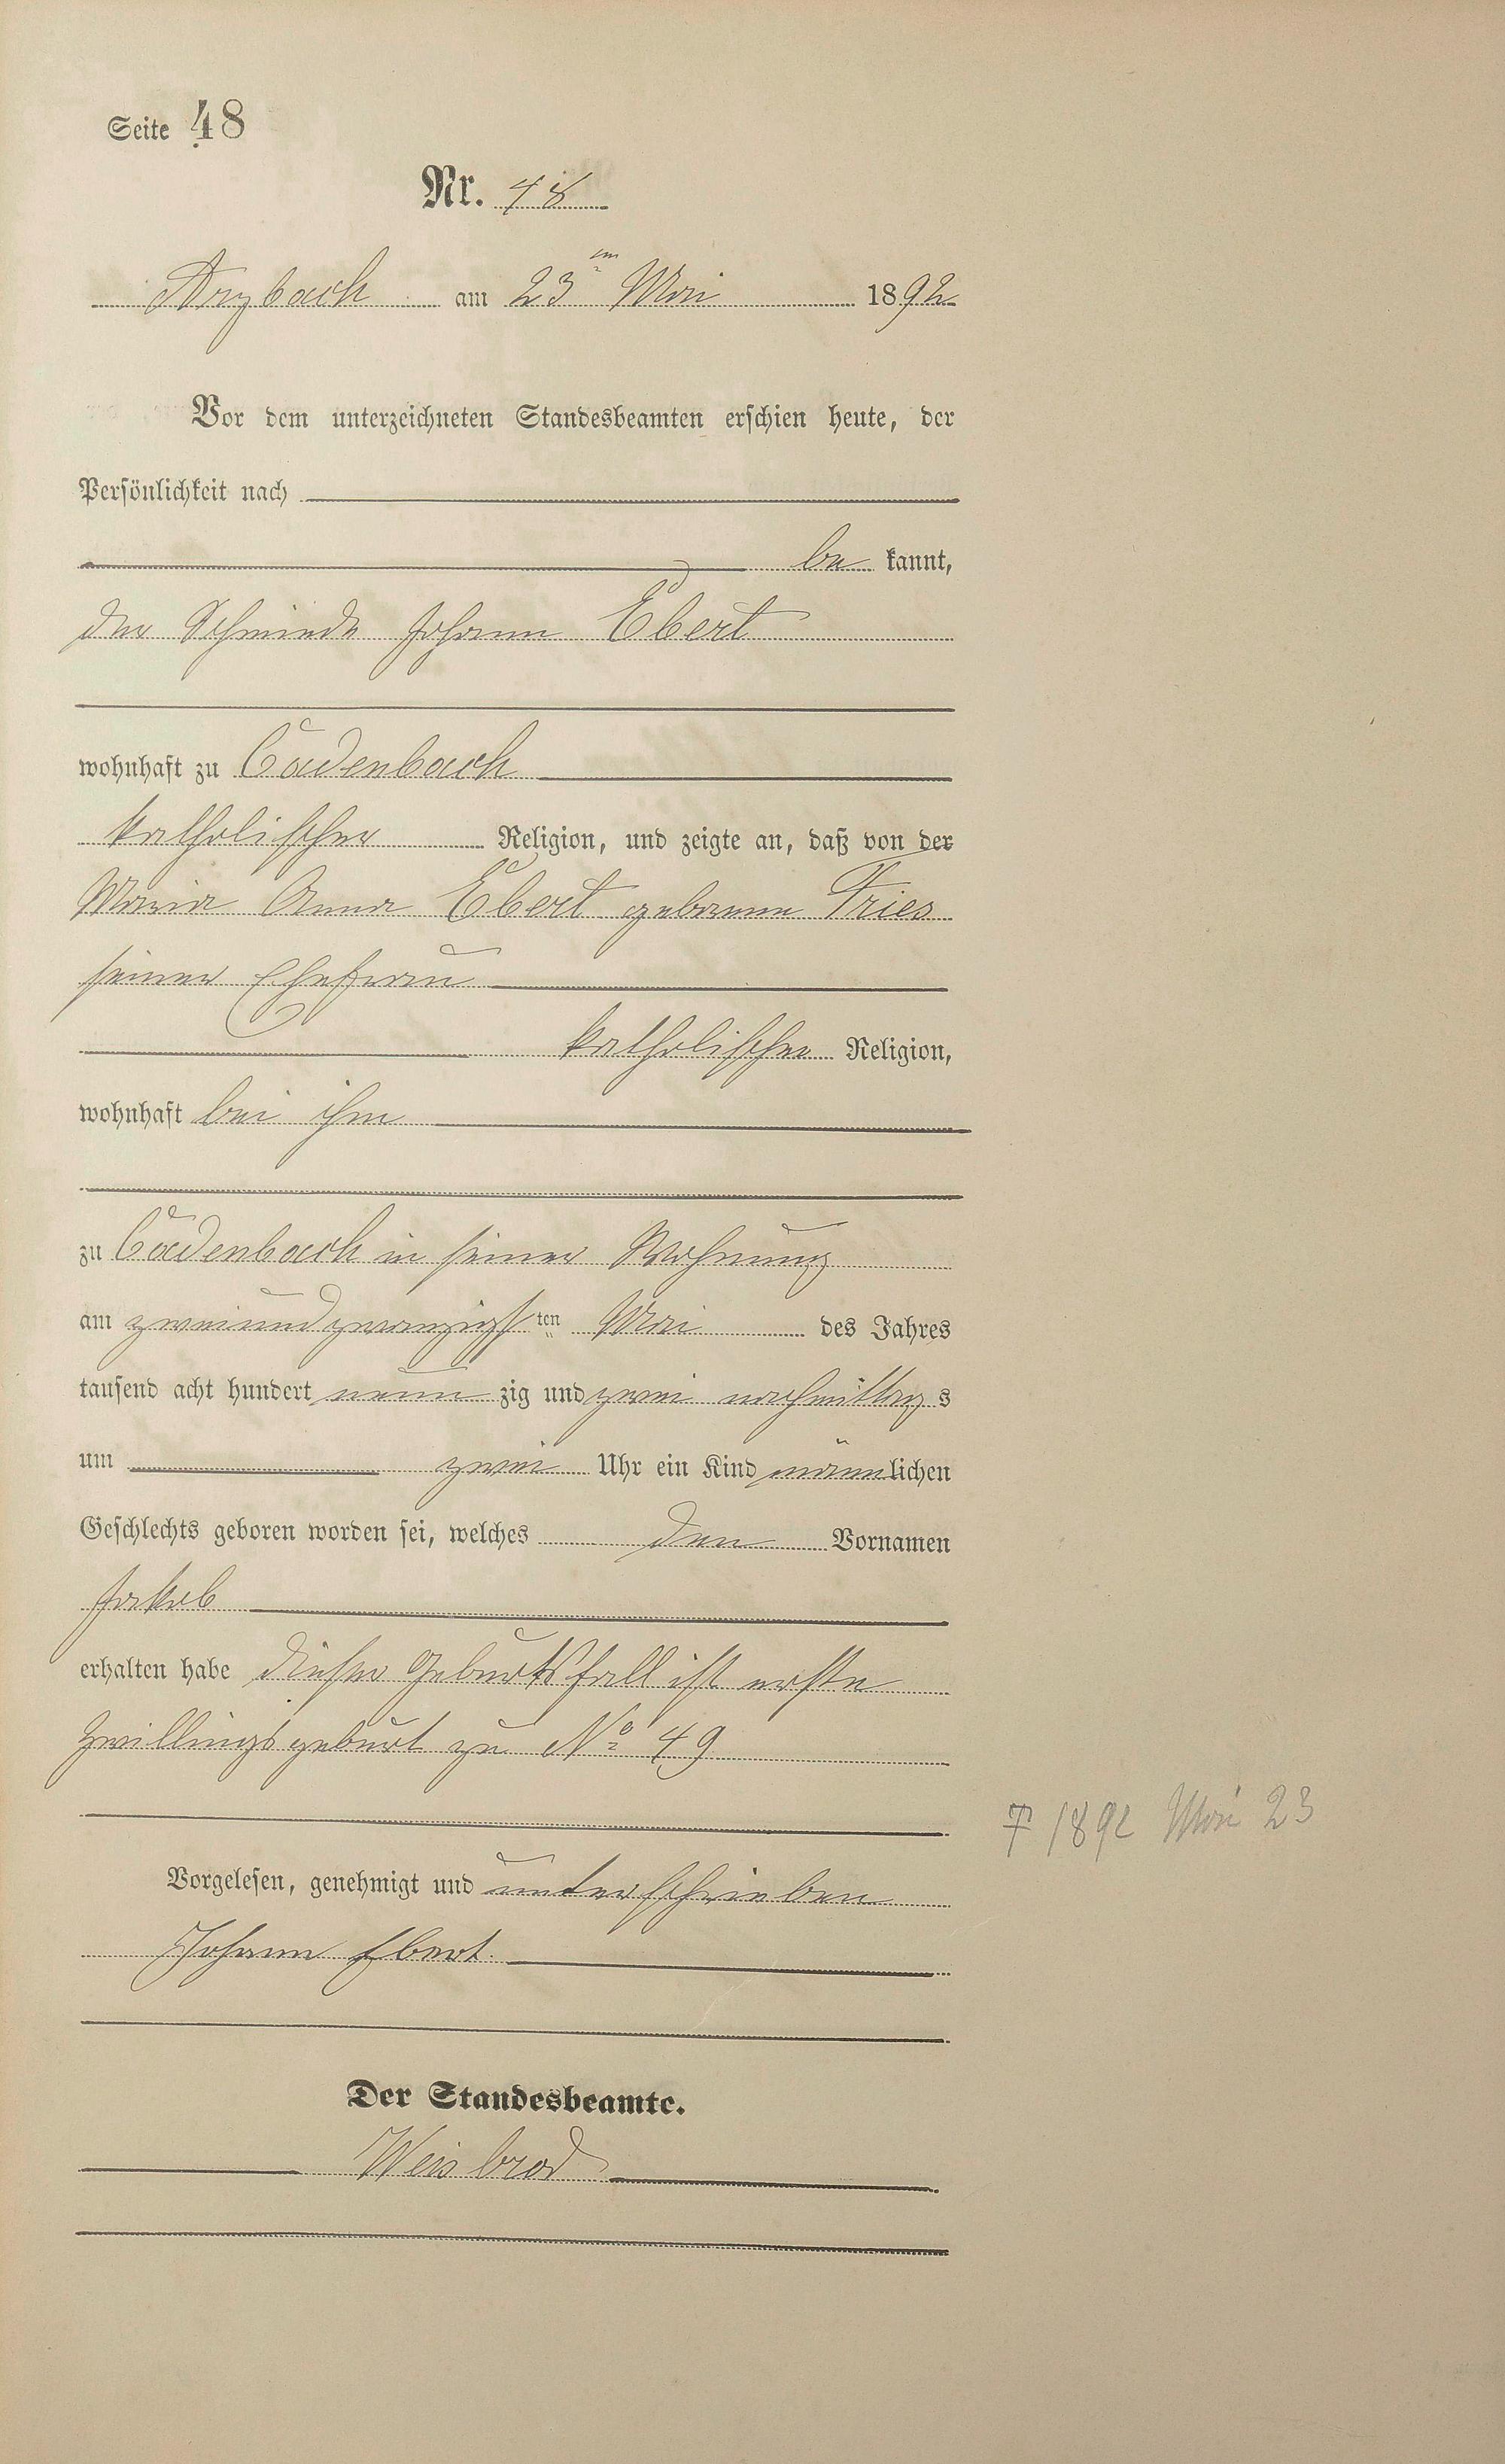 Seite 48
Nr. 48
Arzbach am 23ten Mai 1892
Vor dem unterzeichneten Standesbeamten erschien heute, der
Persönlichkeit nach
be kannt,
der Schmiede Johann Ebert
wohnhaft zu Cadenbach
katholischer Religion, und zeigte an, daß von der
Maria Anna Ebert geborene Fries
seiner Ehefrau
katholischer Religion,
wohnhaft bei ihm
zu Cadenbach in seiner Wohnung
am zweiundzwanzigsten Mai des Jahres
tausend acht hundert neun zig und zwei nachmittags
um zwei Uhr ein Kind männlichen
Geschlechts geboren worden sei, welches den Vornamen
Jakob
erhalten habe dieser Geburtsfall ist erste
Zwillingsgeburt zu No 49
† 1892 Mai 23
Vorgelesen, genehmigt und unterschrieben
Johann Ebert.
Der Standesbeamte.
Weisbrod